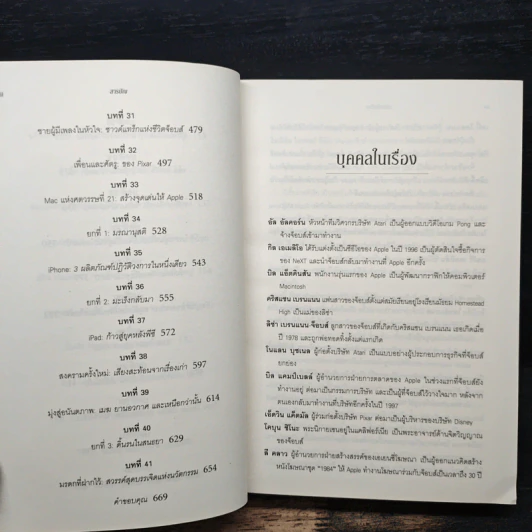 สารบัญ
บทที่ 31
ชายผู้มีเพลงในหัวใจ: ซาวด์แทร็กแห่งชีวิตจ็อบส์ 479
บทที่ 32
เพื่อนและศัตรู: ของ Pixar 497
บทที่ 33
Mac แห่งศตวรรษที่ 21: สร้างจุดเด่นให้ Apple 518
บทที่ 34
ยกที่ 1: มรณานุสติ 528
บทที่ 35
iPhone: 3 ผลิตภัณฑ์ปฏิวัติวงการในหนึ่งเดียว 543
บทที่ 36
ยกที่ 2: มะเร็งกลับมา 555
บทที่ 37
iPad: ก้าวสู่ยุคหลังพีซี 572
บทที่ 38
สงครามครั้งใหม่: เสียงสะท้อนจากเรื่องเก่า 597
บทที่ 39
มุ่งสู่อนันตภาพ: เมฆ ยานอวกาศ และเหนือกว่านั้น 614
บทที่ 40
ยกที่ 3: ดิ้นรนในสนธยา 629
บทที่ 41
มรดกที่ฝากไว้: สวรรค์สุดบรรเจิดแห่งนวัตกรรม 654
คำขอบคุณ 669
บุคคลในเรื่อง
อัล อัลคอร์น หัวหน้าทีมวิศวกรบริษัท Atari เป็นผู้ออกแบบวิดีโอเกม Pong และ
จ้างจ็อบส์เข้ามาทำงาน
กิล เอเมลิโอ ได้รับแต่งตั้งเป็นซีอีโอของ Apple ในปี 1996 เป็นผู้ตัดสินใจซื้อกิจการ
ของ NeXT และนำจ็อบส์กลับมาทำงานที่ Apple อีกครั้ง
บิล แอ็ตคินสัน พนักงานรุ่นแรกของ Apple เป็นผู้พัฒนากราฟิกให้คอมพิวเตอร์
Macintosh
คริสแซน เบรนแนน แฟนสาวของจ็อบส์ตั้งแต่สมัยเรียนอยู่โรงเรียนมัธยม Homestead
High เป็นแม่ของลิซ่า
ลิซ่า เบรนแนน จ็อบส์ ลูกสาวของจ็อบส์ที่เกิดกับคริสแซน เบรนแนน เธอเกิดเมื่อ
ปี 1978 และถูกพ่อทอดทิ้งตั้งแต่แรกเกิด
โนแลน บุชเนล ผู้ก่อตั้งบริษัท Atari เป็นแบบอย่างผู้ประกอบการธุรกิจที่จ็อบส์
ยกย่อง
บิล แคมป์เบลล์ ผู้อำนวยการฝ่ายการตลาดของ Apple ในช่วงแรกที่จ็อบส์ยัง
ทำงานอยู่ ต่อมาเป็นกรรมการบริษัท และเป็นผู้ที่จ็อบส์ไว้วางใจมาก หลังจาก
ตนเองกลับมาทำงานที่บริษัทอีกครั้งในปี 1997
เอ็ดวิน แค็ตมัล ผู้ร่วมก่อตั้งบริษัท Pixar ต่อมาเป็นผู้บริหารของบริษัท Disney
โคบุน ชิโนะ พระนิกายเซนอยู่ในแคลิฟอร์เนีย เป็นพระอาจารย์ด้านจิตวิญญาณ
ของจ็อบส์
ลี คลาว ผู้อำนวยการฝ่ายสร้างสรรค์ของเอเยนซีโฆษณา เป็นผู้ออกแนวคิดสร้าง
หนังโฆษณาชุด "1984" ให้ Apple ทำงานโฆษณาร่วมกับจ็อบส์เป็นเวลาถึง 30 ปี